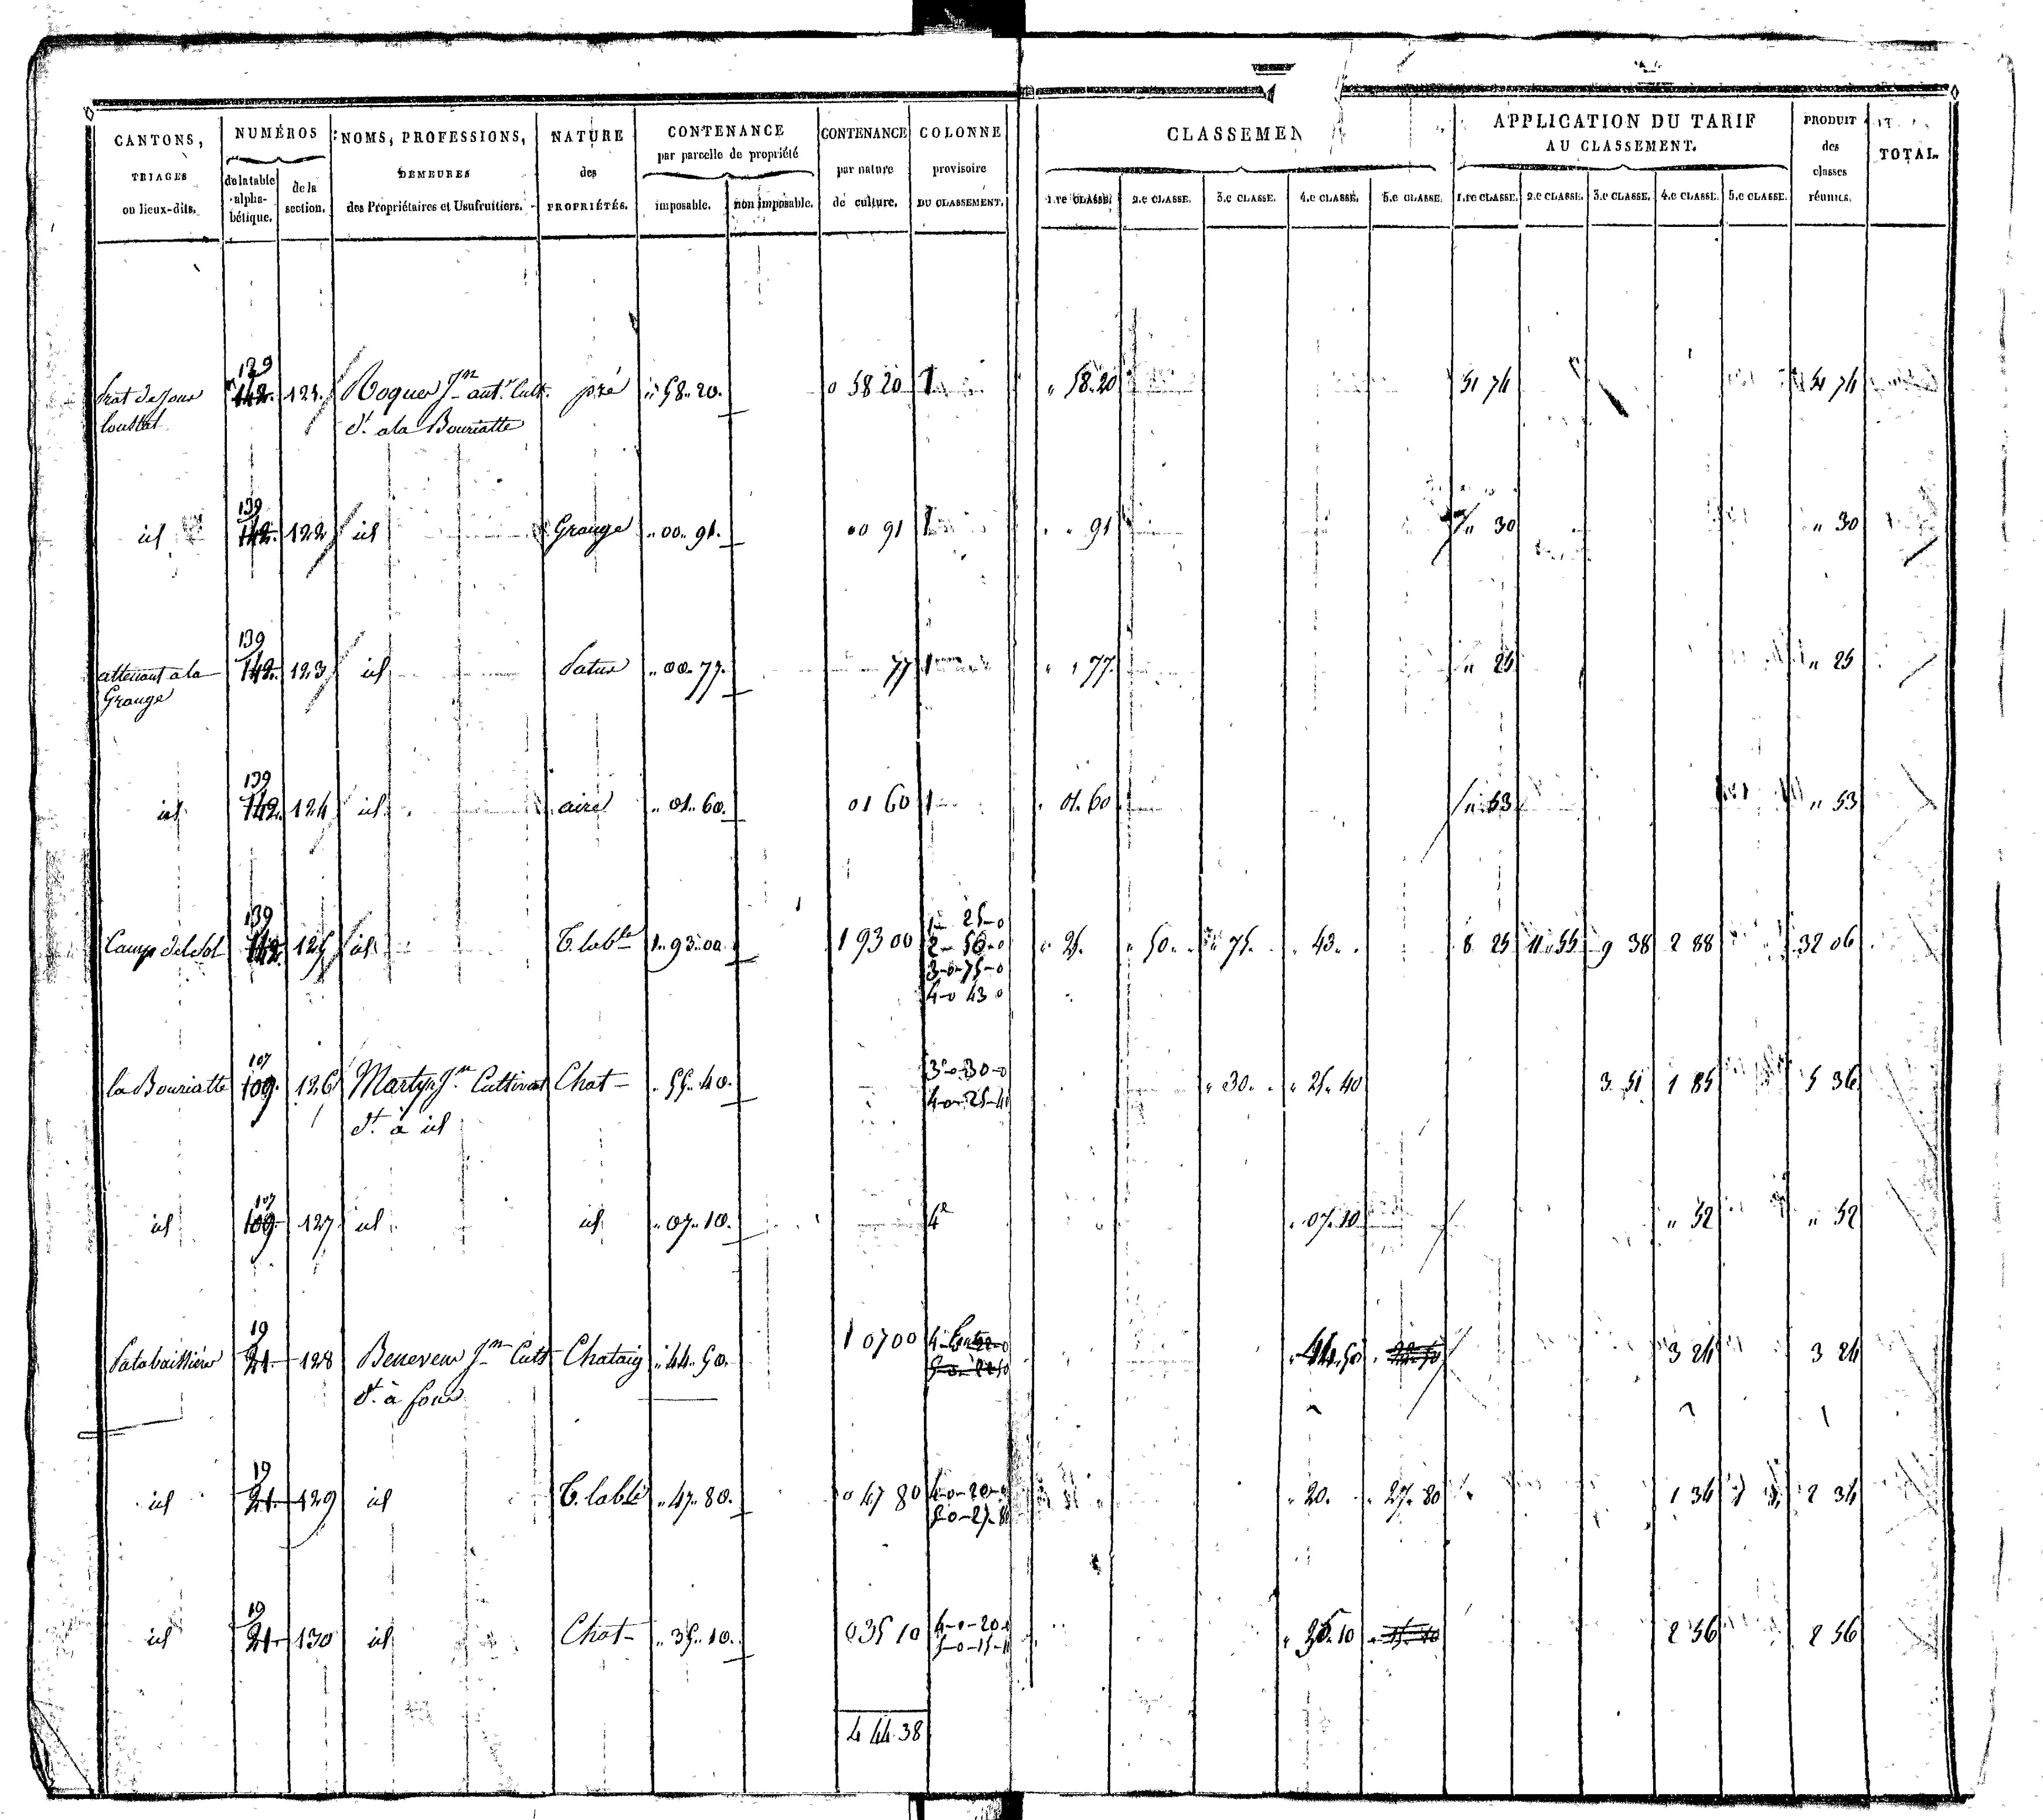 CANTONS, TRIAGES ou lieux-dits.
NUMÉROS
de la table alphabétique.
de la section.
NOMS, PROFESSIONS, DEMEURES des Propriétaires et Usufruitiers.
NATURE des PROPRIÉTÉS.
CONTENANCE par parcelle de propriété
imposable.
non imposable.
CONTENANCE par nature de culture.
COLONNE provisoire DU CLASSEMENT.
CLASSEMEN
1.re CLASSE. 2.e CLASSE. 3.e CLASSE. 4.e CLASSE. 5.e CLASSE.
APPLICATION DU TARIF AU CLASSEMENT.
1.re CLASSE. 2.e CLASSE. 3.e CLASSE. 4.e CLASSE. 5.e CLASSE.
PRODUIT des classes réunies.
TOTAL.
139
142. 121. Roques Jn. ant. Cult. pré " 58. 20. 0 58 20 1 " 58. 20 51 74 51 74
dt. a la Bouriatte
139
id 142. 122 id Grange " 00. 91. 00 91 1 " " 91 " 30 " 30
139
attenant a la 142. 123 id Patus " 00. 77. 77 1 " " 77. " 25 " 25
Grange
139
id 142. 124 id aire " 01. 60. 01 60 1 " 01. 60 " 53 " 53
139 1 - 25 - 0
Camp del sol 142 125 id T. lable 1. 93. 00. 1 93 00 2 - 50 - 0 " 25. " 50. " " 75. " 43. " 8 25 11 55 9 38 2 88 32 06
3 - 0 - 75 - 0
4 - 0 43 0
107 3 - 0 - 30 - 0
la Bouriatte 109. 126 Martyn Jn. Cultivat Chat - " 55. 40. 4 - 0 - 25 - 40 " 30. " " 25. 40 3 51 1 85 5 36
dt. à id
107
id 109. 127 id id " 07. 10. 4e " 07. 10 " 52 " 52
19
21 128 Jn Cult Chataig " 44. 50. 1 07 00 " 44. 50 3 24 3 24
dt. à
19
id 21. 129 id T. lable " 47. 80. 0 47 80 4 - 0 - 20 - 0 " 20. " 27. 80 1 34 2 34
5 - 0 - 27 - 80
19
id 21. 130 id Chat - " 35. 10. 0 35 10 4 - 0 - 20 - 0 " 35. 10 15. 10 2 56 2 56
5 - 0 - 15 - 1
4 44 38